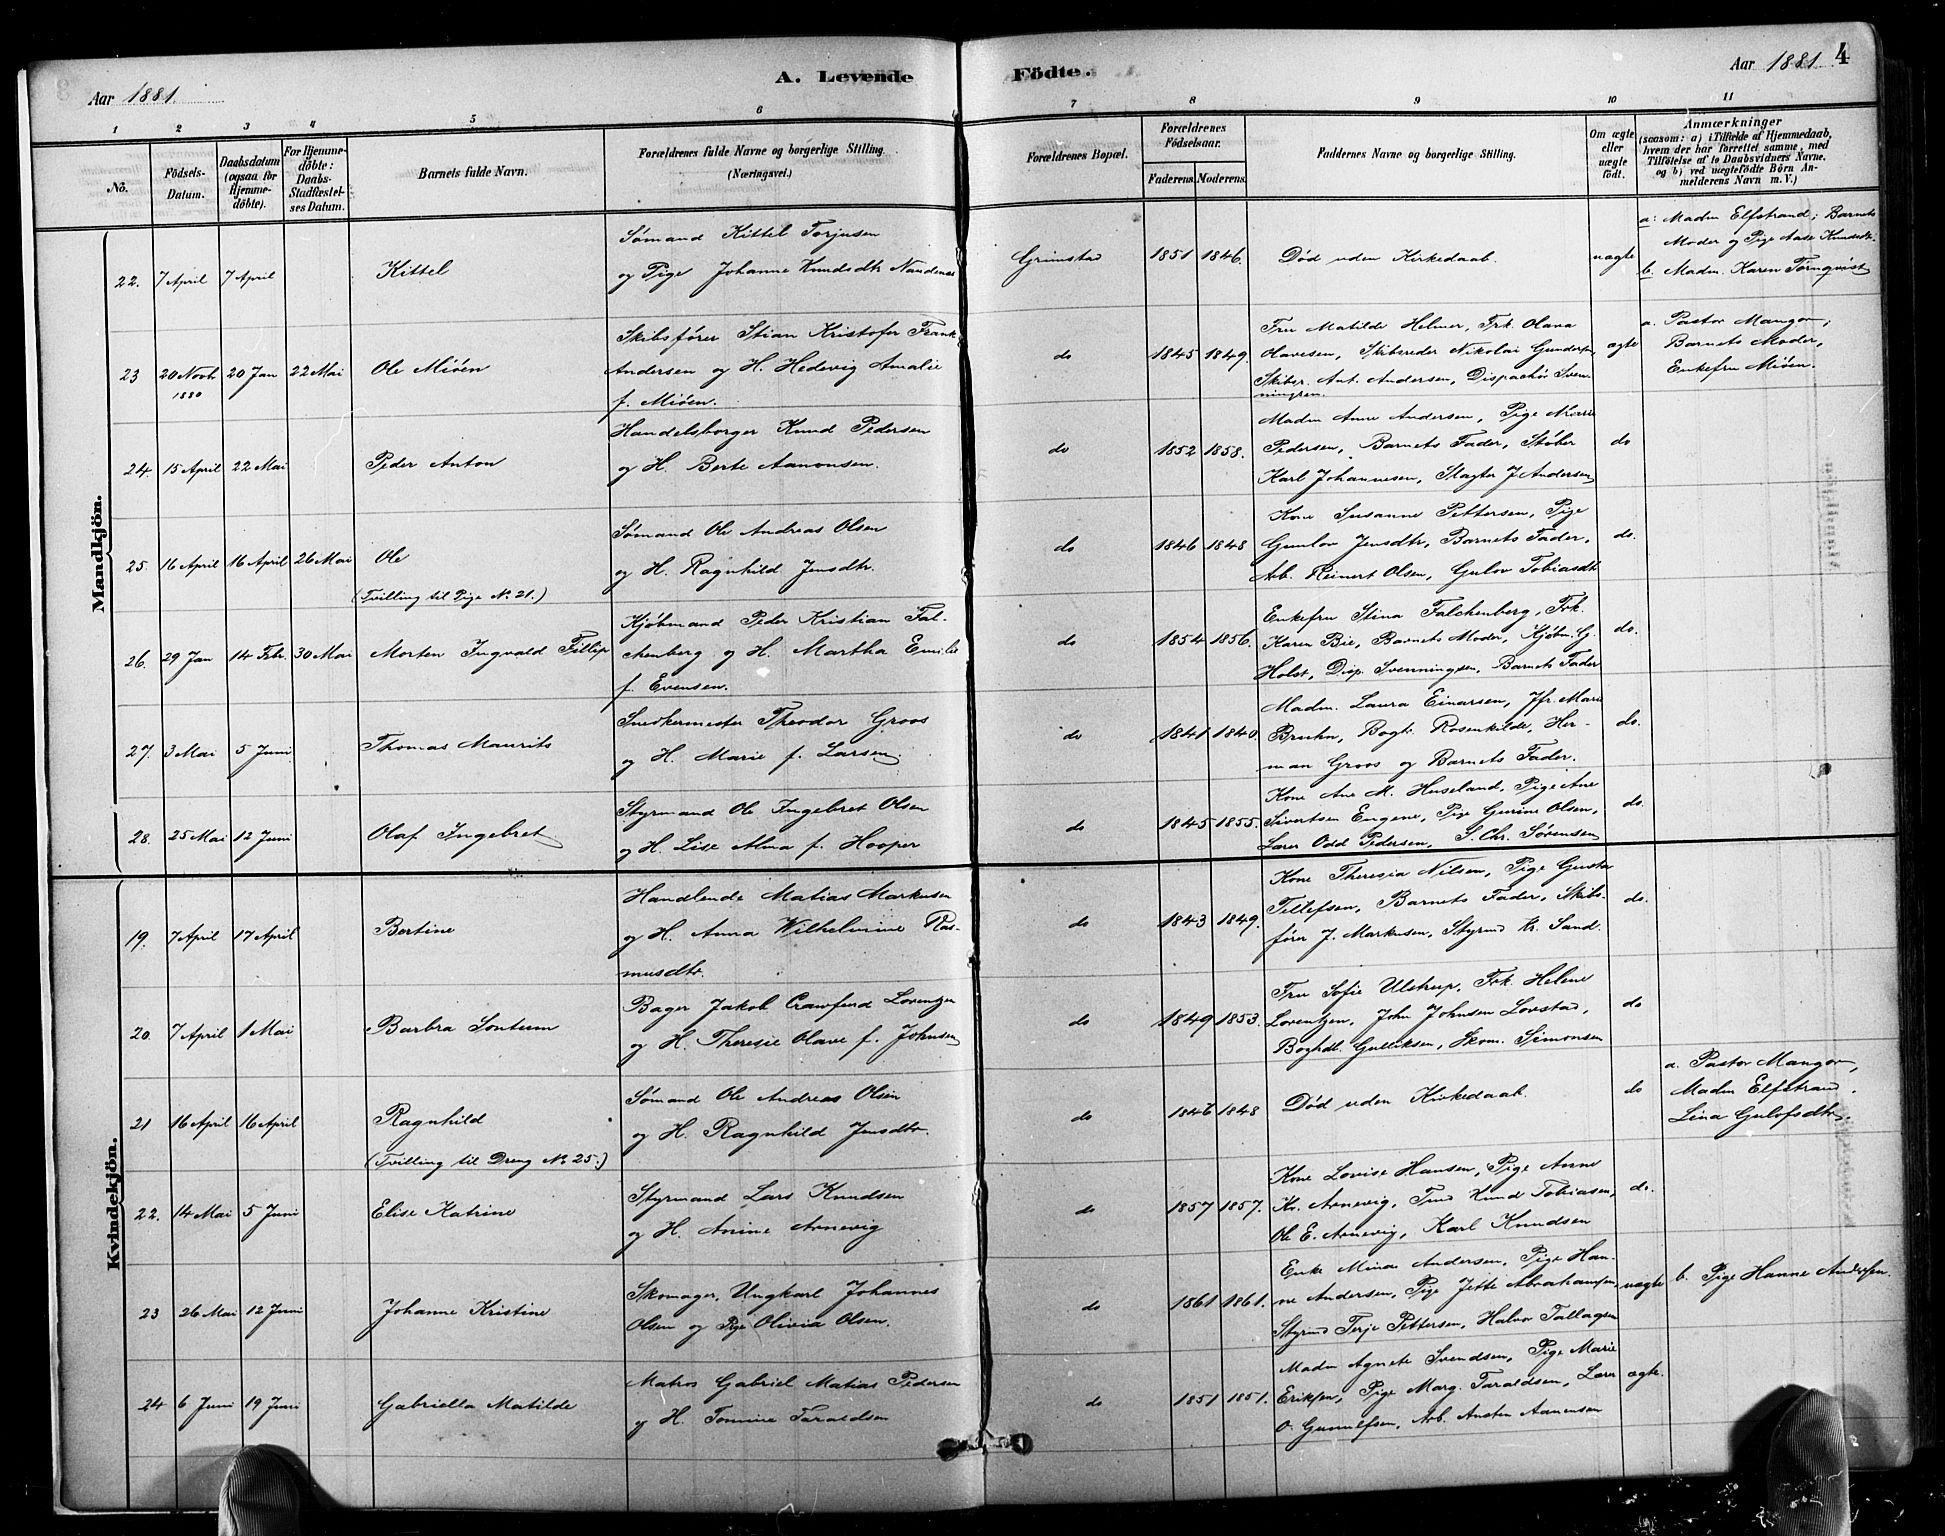 A. Levende Födte.
Aar 1881.
Aar 1881
4
1 2 3 4 5 6 7 8 9 10 11
No.
Födsels-Datum.
Daabsdatum (ogsaa for Hjemmedöbte).
For Hjemmedöbte: Daabs-Stadfæstelses Datum.
Barnets fulde Navn.
Forældrenes fulde Navne og borgerlige Stilling (Næringsvei.)
Forældrenes Bopæl.
Forældrenes Födselsaar.
Faderens. Moderens.
Faddernes Navne og borgerlige Stilling.
Om ægte eller uægte födt.
Anmærkninger
(saasom: a) i Tilfælde af Hjemmedaab, hvem der har forrettet samme, med Tilföielse af to Daabsvidners Navne, og b) ved uægtefödte Börn Anmelderens Navn m. V.)
Mandkjön.
22. 7 April 7 April Kittel
Sømand Kittel Torjusen
og Pige Johanne Knudsdtr Nandenes
Grimstad 1851 1846. Død uden Kirkedaab. uægte
a: Madm Elfstrand; Barnets
Moder og Pige Aase Knudsdtr.
b. Madm. Karen Törnqvist
23 20 Novb. 1880 20 Jan 22 Mai Ole Miöen
Skibsfører Stian Kristofer Frank
Andersen og H. Hedevig Amalie
f. Miöen.
do 1845 1849.
Fru Matilde Helmer, Frk. Olava
Olavesen, Skibsreder Nikolai Gundersen,
Skibsr. Ant. Andersen, Dispachör Svenningsen.
ægte
a. Pastor Mangor;
Barnets Moder,
Enkefru Miöen.
24. 15 April 22 Mai Peder Anton
Handelsborger Knud Pedersen
og H. Berte Aanonsen.
do 1852 1858.
Madm Anne Andersen, Pige Marie
Pedersen, Barnets Fader, Støber
Karl Johannesen, Slagter J Andersen
do
25. 16 April 16 April 26 Mai Ole
(Tvilling til Pige No. 21.)
Sømand Ole Andreas Olsen
og H. Ragnhild Jensdtr.
do 1846 1848
Kone Susanne Pettersen, Pige
Gunlov Jensdtr, Barnets Fader,
Arb. Reinert Olsen, Gulov Tobiasdt
do.
26. 29 Jan 14 Febr. 30 Mai Morten Ingvald Fillip
Kjøbmand Peder Kristian Fal-
chenberg og H. Martha Emilie
f. Evensen.
do 1854 1856.
Enkefru Stina Falchenberg, Frk.
Karen Bie, Barnets Moder, Kjøbm. G.
Holst, Disp. Svenningsen, Barnets Fader
do.
27. 3 Mai 5 Juni Thomas Maurits
Snedkermester Theodor Groos
og H. Marie f. Larsen.
do 1841 1840.
Madm. Laura Einarsen, Jfr. Marie
Bruhn, Bogtr. Rosenkilde, Her-
man Groos og Barnets Fader.
do.
28. 25 Mai 12 Juni Olaf Ingebret
Styrmand Ole Ingebret Olsen
og H. Lise Alma f. Hooper
do 1845 1855.
Kone Ane M. Huseland, Pige Ane
Sivertsen Eugene, Pige Gurine Olsen,
Lærer Odd Pedersen, S. Chr. Sørensen
do.
Kvindekjön.
19. 7 April 17 April Bertine
Handlende Matias Markusen
og H. Anna Wilhelmine Ras-
musdtr.
do 1843 1849.
Kone Theresia Nilsen, Pige Gusta
Tellefsen, Barnets Fader, Skibs-
fører J. Markusen, Styrmd Kr. Sand.
do.
20. 7 April 1 Mai Barbra Sontum
Bager Jakob Crawfurd Lorentzen
og H. Theresie Olave f. Johnsen
do 1849 1853.
Fru Sofie Ulstrup, Frk. Helene
Lorentzen, John Johnsen Lovstad,
Boghdl. Gulliksen, Skom. Simonsen
do
21 16 April 16 April Ragnhild
(Tvilling til Dreng No 25.)
Sømand Ole Andreas Olsen
og H. Ragnhild Jensdtr.
do 1846 1848 Død uden Kirkedaab. do
a. Pastor Mangor,
Madm Elfstrand.
Lina Gulofsdtr.
22. 14 Mai 5 Juni Elise Katrine
Styrmand Lars Knudsen
og H. Anine Arnevig
do 1857 1857.
Kone Lovise Hansen, Pige Anne
Kr. Arnevig, Tmd Knud Tobiasen,
Ole E. Arnevig, Karl Knudsen
do.
23 26 Mai 12 Juni Johanne Kristine
Skomager, Ungkarl Johannes
Olsen og Pige Olivia Olsen.
do 1861 1861.
Enke Mina Andersen, Pige Han-
ne Andersen, Pige Jette Abrahamsen,
Styrmd Terje Pettersen, Halvor Tallagsen
uægte
b. Pige Hanne Andersen.
24 6 Juni 19 Juni Gabriella Matilde
Matros Gabriel Matias Pedersen
og H. Tomine Taraldsen
do 1851 1851.
Madm Agnete Svendsen, Pige Marie
Eriksen, Pige Marg. Taraldsen, Lærer
O. Gunulfsen, Arb. Austen Aanensen
ægte.